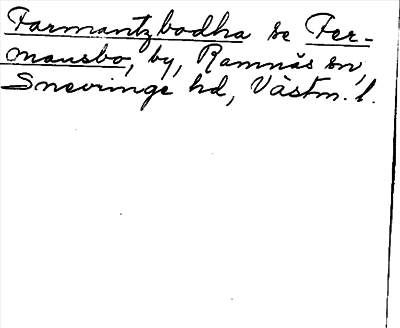 Farmantzbodha se Fer-
mansbo, by, Ramnäs sn,
Snevringe hd, Västm. l.